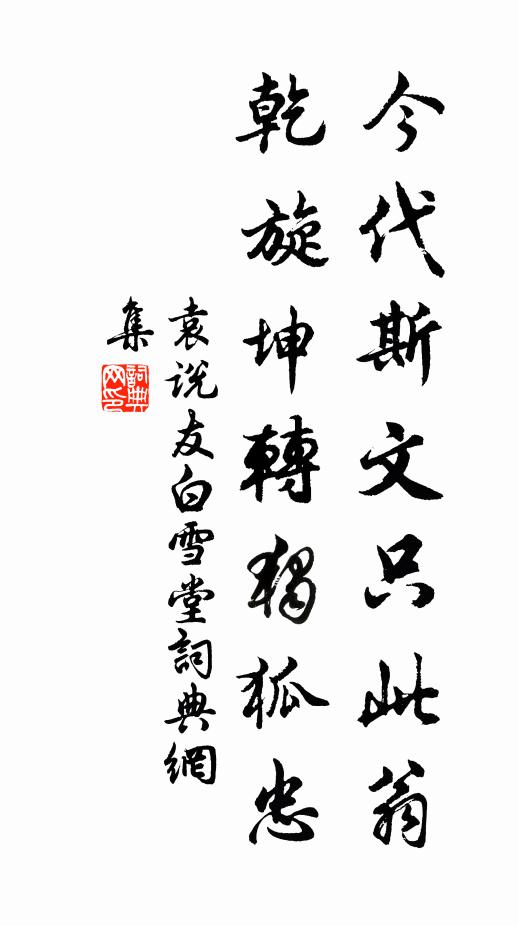 今代斯文只此翁
乾旋坤轉獨狐忠
袁说友白雪堂詞典網
集
詞典
网印